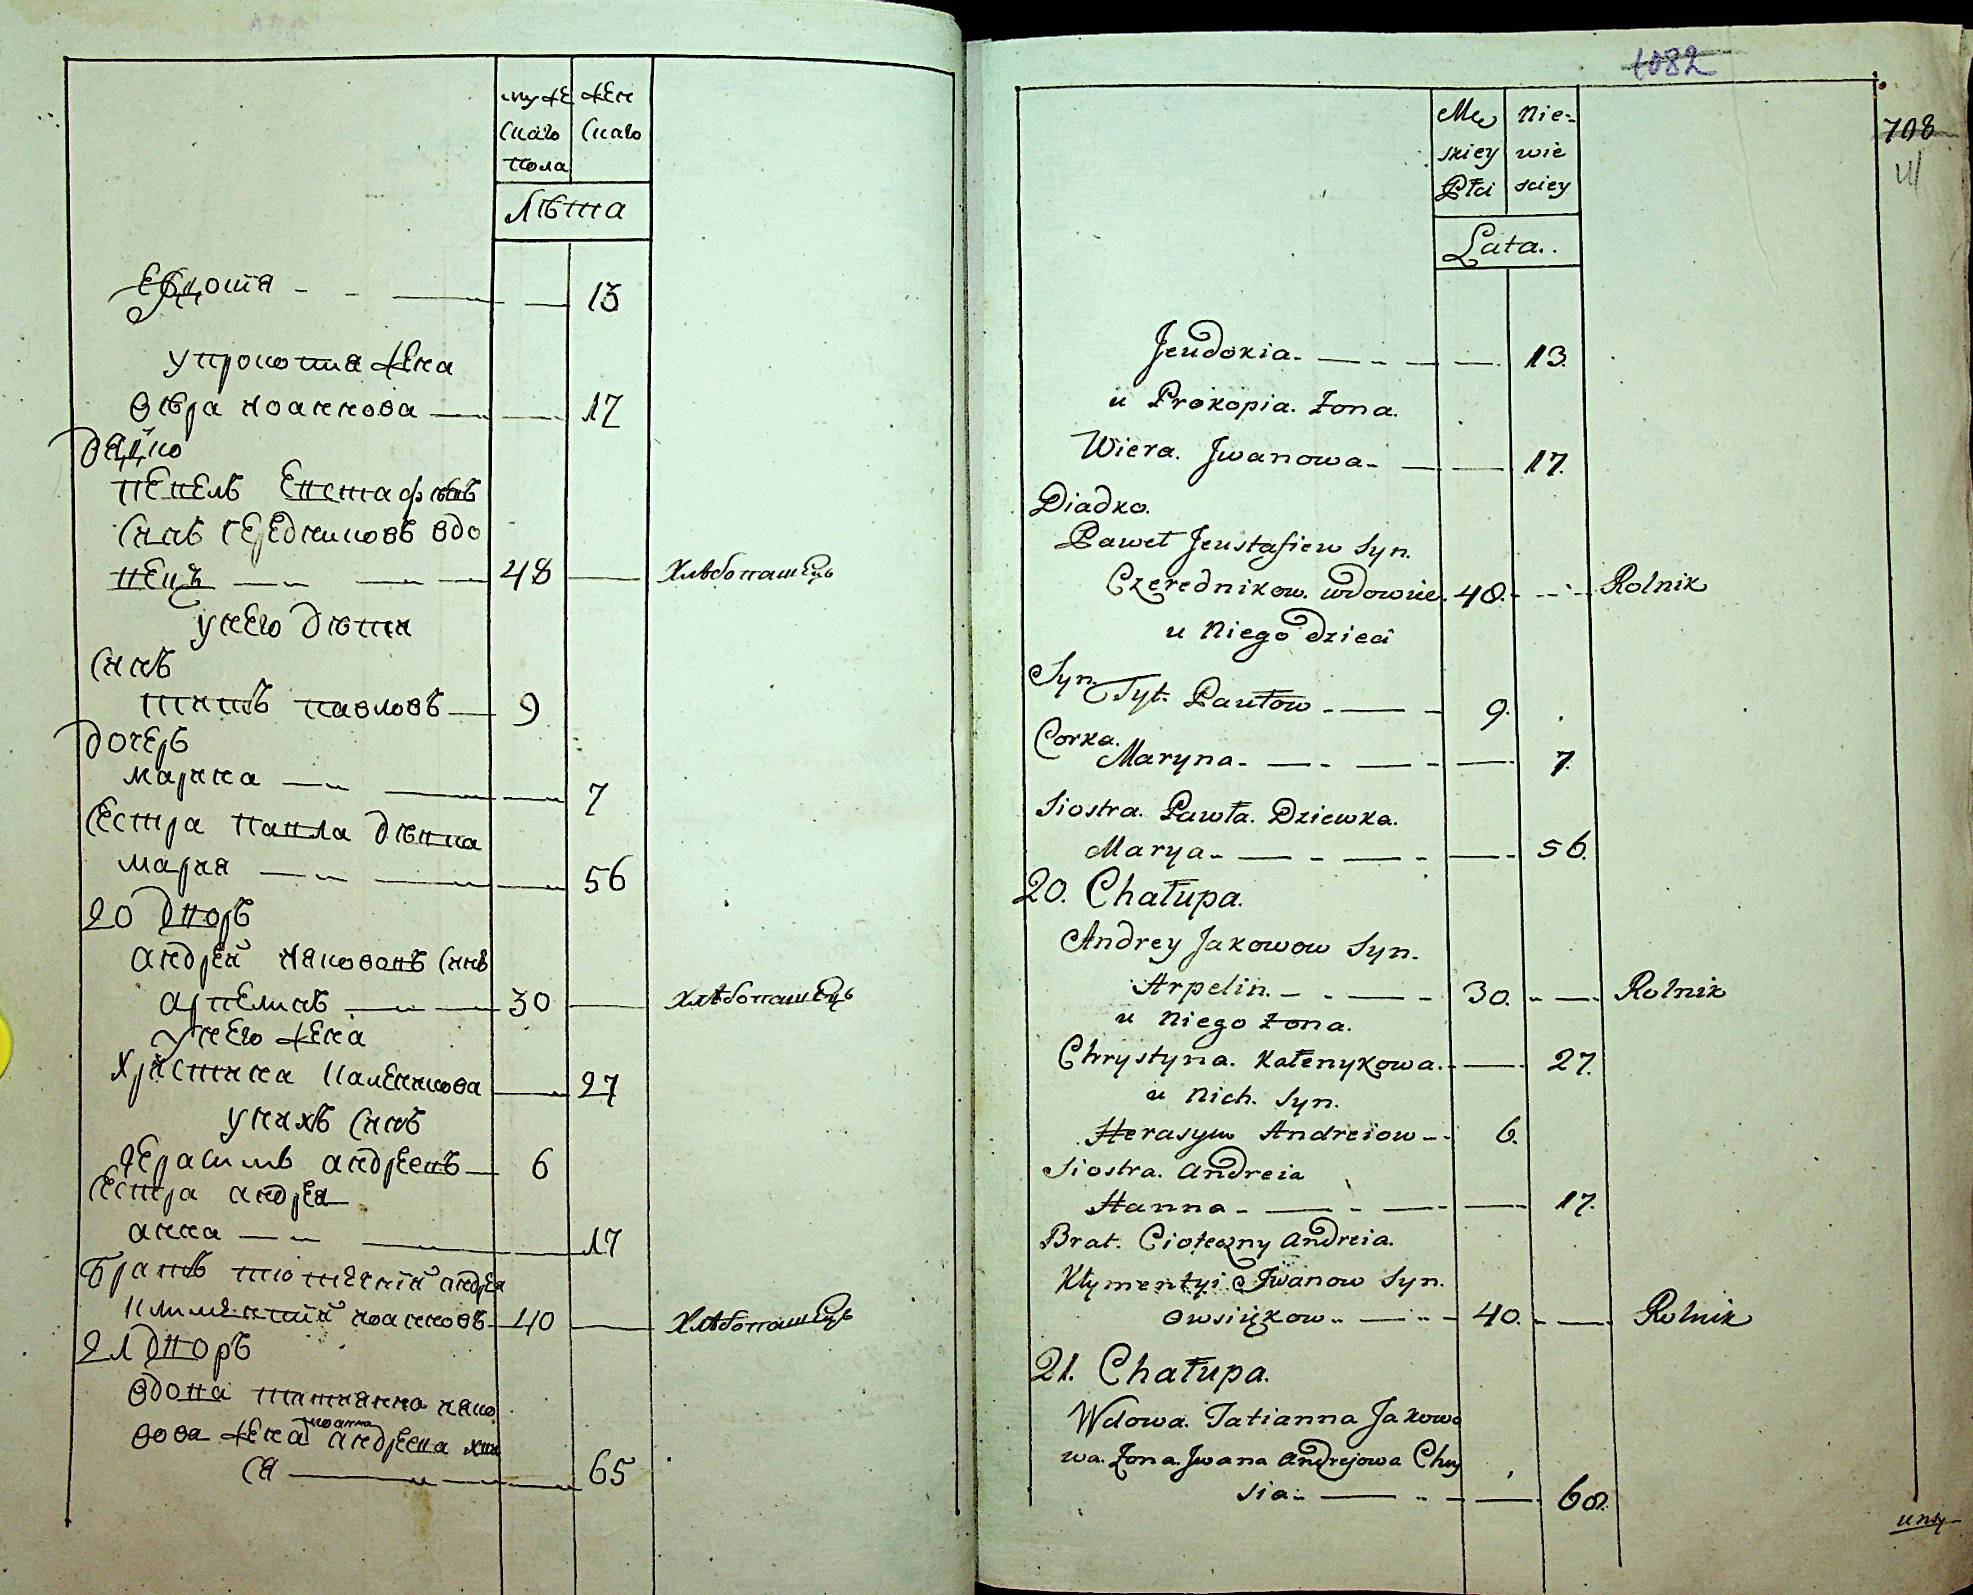 муже
скаго
пола
жен
скаго
Лѣта
Евдокия 13
у прокопия жена
вѣра иоаннова 17
дядко
павелъ евстафиевъ
синъ чередниковъ вдо
вецъ 48 Хлѣбопашецъ
у него дѣти
синъ
титъ павловъ 9
дочерь
марина 7
сестра павла дѣвка
мария 56
20 дворъ
андрей иакововъ синъ
арпелинъ 30 Хлѣбопашецъ
у него жена
христина каленикова 27
у нихъ синъ
герасимъ андреевъ 6
сестра андрея
анна 17
братъ тютечній андрея
климентий иоанновъ 40 Хлѣбопашецъ
21 дворъ
вдова татианна иако
вова жена иоанна андреева хри
ся 65
1082
708
Mę
skiey
Płci
Nie-
wie
sciey
Lata.
Jeudokia. 13.
u Prokopia. żona.
Wiera. Jwanowa. 17.
Diadko.
Paweł Jeustafiew Syn.
Czerednikow. wdowiec. 48. Rolnik
u Niego dzieci
Syn. Tyt. Pawłow 9.
Corka.
Maryna. 7.
Siostra. Pawła. Dziewka.
Marya. 56.
20. Chałupa.
Andrey Jakowow Syn.
Arpelin. 30. Rolnik
u Niego żona.
Chrystyna. Kałenykowa. 27.
u Nich. Syn.
Herasym Andreiow 6.
Siostra. Andreia
Hanna 17.
Brat. Cioteczny Andreia.
Kłymentyi Jwanow Syn.
Owsiykow 40. Rolnik
21. Chałupa.
Wdowa. Tatianna Jakowo
wa. Żona Jwana Andrejowa Chry
sia 68.